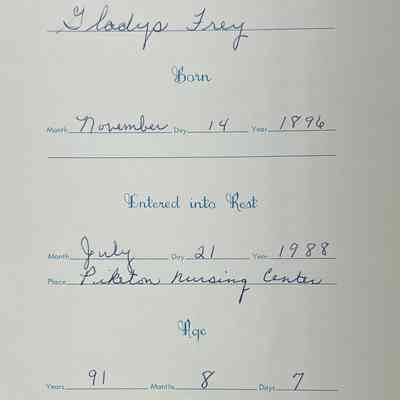 Gladys Frey
Born
Month November Day 14 Year 1896
Entered into Rest
Month July Day 21 Year 1988
Place Piketon Nursing Center
Age
Years 91 Months 8 Days 7